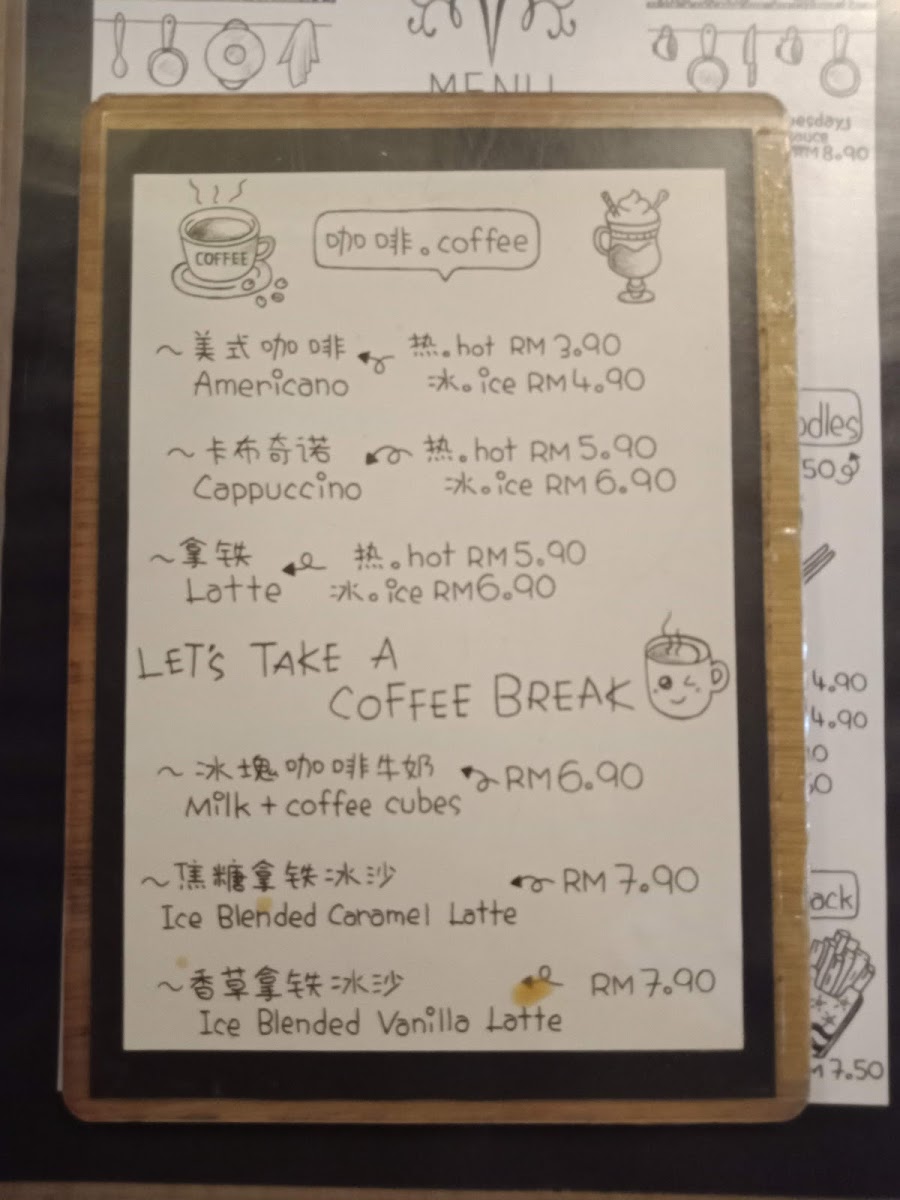 MENU
esdays
auce
RM 8.90
COFFEE
咖啡。coffee
~ 美式咖啡 热。hot RM 3.90
Americano 冰。ice RM 4.90
~ 卡布奇诺 热。hot RM 5.90
Cappuccino 冰。ice RM 6.90
~ 拿铁 热。hot RM 5.90
Latte 冰。ice RM 6.90
LET'S TAKE A
COFFEE BREAK
~ 冰块咖啡牛奶 RM 6.90
Milk + coffee cubes
~ 焦糖拿铁冰沙 RM 7.90
Ice Blended Caramel Latte
~ 香草拿铁冰沙 RM 7.90
Ice Blended Vanilla Latte
odles
50g
4.90
4.90
ack
M 7.50